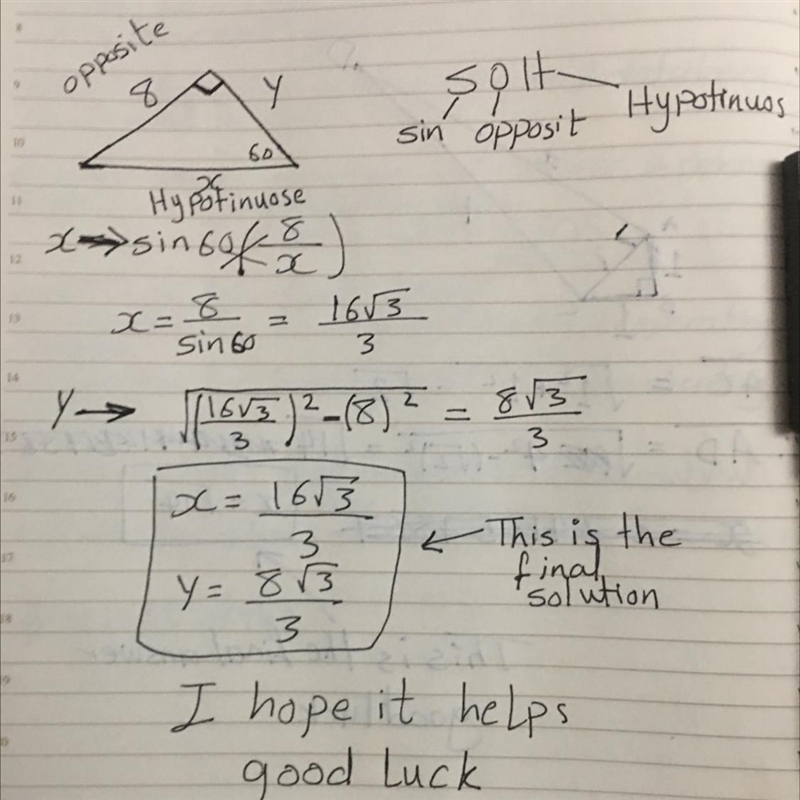 opposite
8 y
60
x
Hypotinuose
SOH
sin opposit Hypotinuos
x → sin 60 ( 8/x )
x = 8/sin 60 = 16√3/3
y → √((16√3/3)² - (8)²) = 8√3/3
x = 16√3/3
y = 8√3/3
This is the
final
solution
I hope it helps
good luck